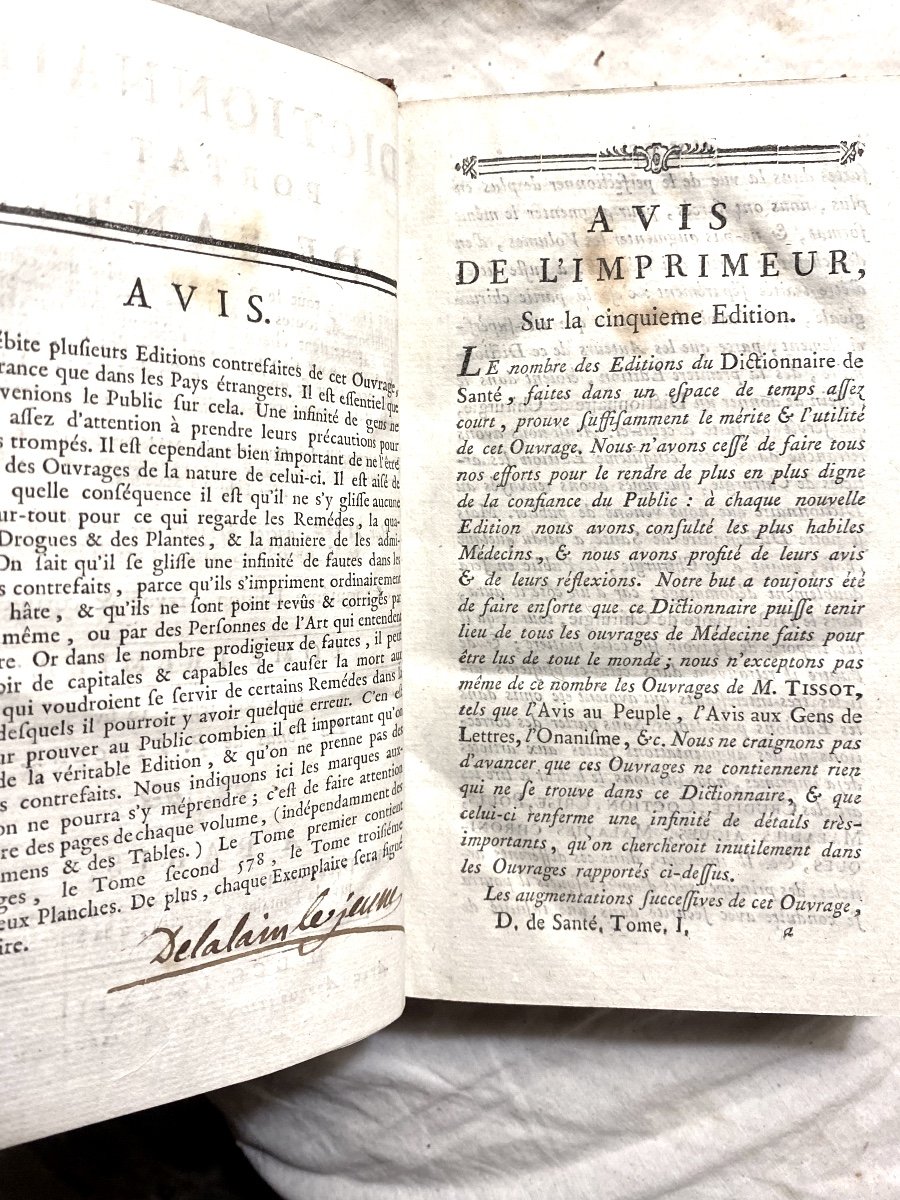 AVIS.
plusieurs Editions contrefaites de cet Ouvrage,
que dans les Pays étrangers. Il est essentiel que
le Public sur cela. Une infinité de gens ne
assez d'attention à prendre leurs précautions pour
trompés. Il est cependant bien important de ne l'être
des Ouvrages de la nature de celui-ci. Il est aisé de
quelle conséquence il est qu'il ne s'y glisse aucune
pour ce qui regarde les Remédes, la qua-
Drogues & des Plantes, & la maniere de les admi-
On sait qu'il se glisse une infinité de fautes dans les
contrefaits, parce qu'ils s'impriment ordinairement
hâte, & qu'ils ne sont point revûs & corrigés par
même, ou par des Personnes de l'Art qui entendent
Or dans le nombre prodigieux de fautes, il peut
de capitales & capables de causer la mort aux
qui voudroient se servir de certains Remédes dans
desquels il pourroit y avoir quelque erreur. C'en est
prouver au Public combien il est important qu'on
de la véritable Edition, & qu'on ne prenne pas des
contrefaits. Nous indiquons ici les marques aux-
on ne pourra s'y méprendre; c'est de faire attention
des pages de chaque volume, (indépendamment des
& des Tables.) Le Tome premier contient
le Tome second 578, le Tome troisiéme
Planches. De plus, chaque Exemplaire sera signé
Delalain le jeune
AVIS
DE L'IMPRIMEUR,
Sur la cinquieme Edition.
LE nombre des Editions du Dictionnaire de
Santé, faites dans un espace de temps assez
court, prouve suffisamment le mérite & l'utilité
de cet Ouvrage. Nous n'avons cessé de faire tous
nos efforts pour le rendre de plus en plus digne
de la confiance du Public : à chaque nouvelle
Edition nous avons consulté les plus habiles
Médecins, & nous avons profité de leurs avis
& de leurs réflexions. Notre but a toujours été
de faire ensorte que ce Dictionnaire puisse tenir
lieu de tous les ouvrages de Médecine faits pour
être lus de tout le monde; nous n'exceptons pas
même de ce nombre les Ouvrages de M. TISSOT,
tels que l'Avis au Peuple, l'Avis aux Gens de
Lettres, l'Onanisme, &c. Nous ne craignons pas
d'avancer que ces Ouvrages ne contiennent rien
qui ne se trouve dans ce Dictionnaire, & que
celui-ci renferme une infinité de détails très-
importants, qu'on chercheroit inutilement dans
les Ouvrages rapportés ci-dessus.
Les augmentations successives de cet Ouvrage,
D. de Santé, Tome, I. a